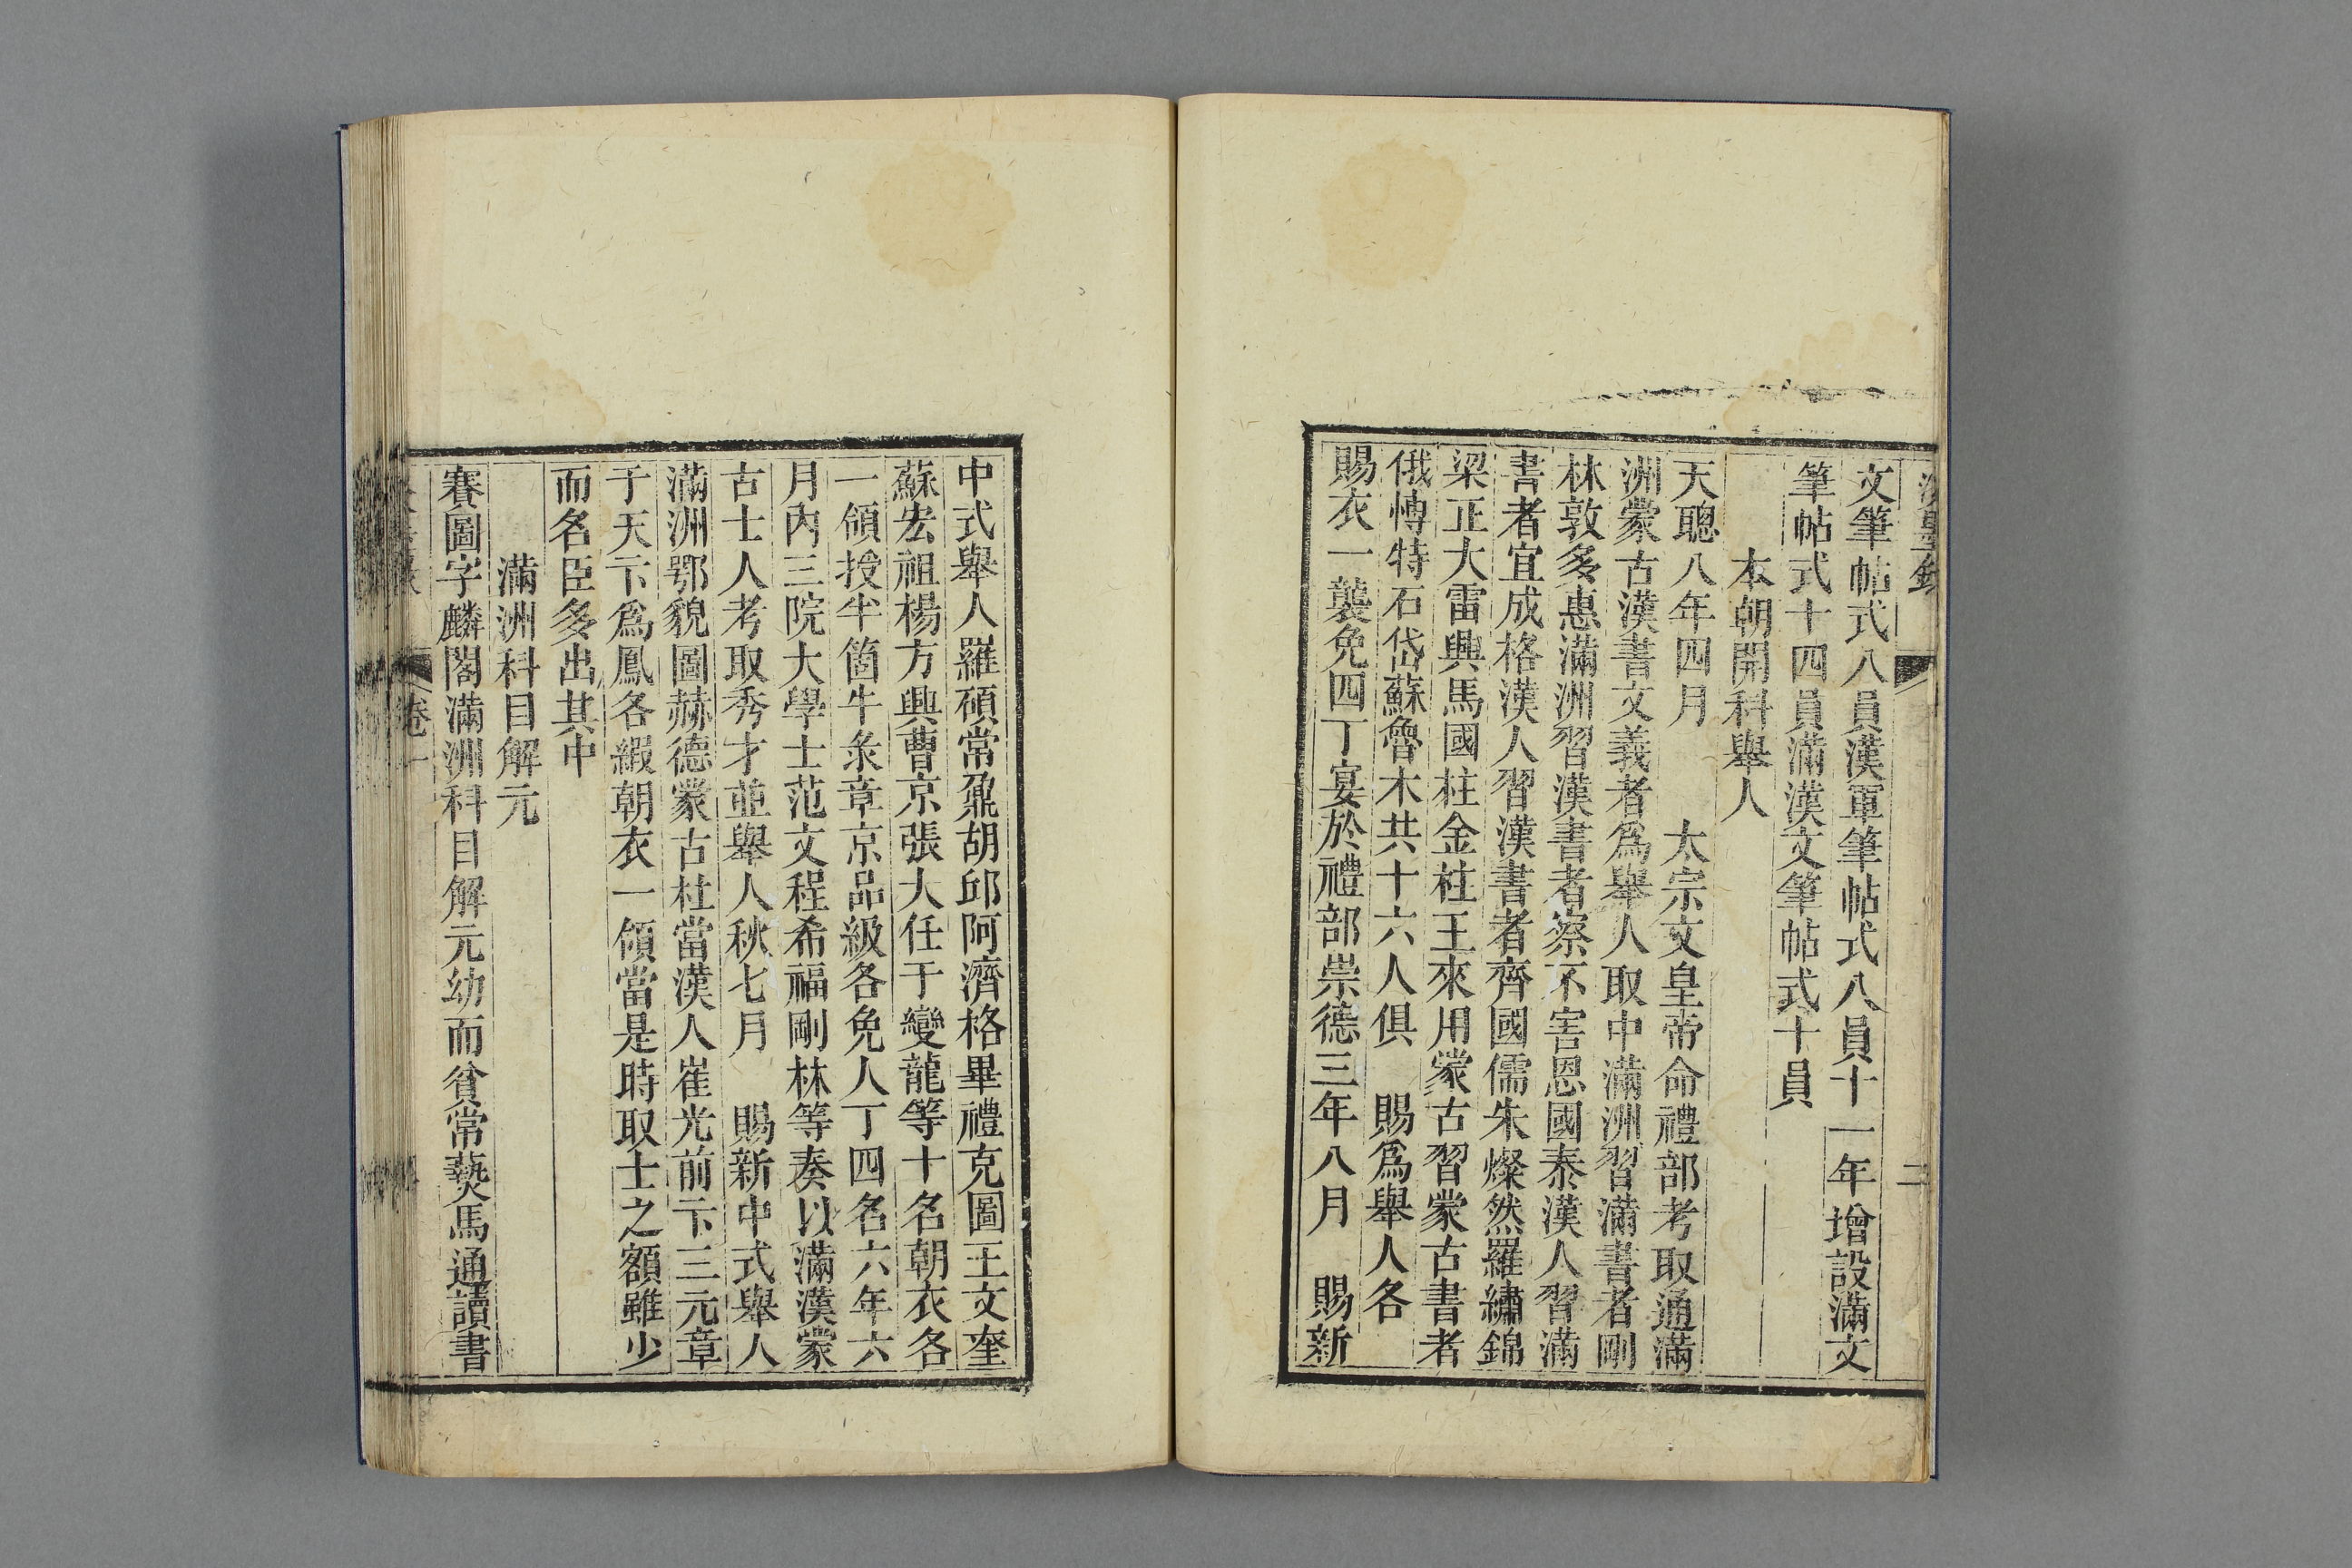 二
文筆帖式八員漢軍筆帖式八員十一年增設滿文
筆帖式十四員滿漢文筆帖式十員
本朝開科舉人
天聰八年四月　太宗文皇帝命禮部考取通滿
洲蒙古漢書文義者爲舉人取中滿洲習滿書者剛
林敦多惠滿洲習漢書者察不害恩國泰漢人習滿
書者宜成格漢人習漢書者齊國儒朱燦然羅繡錦
梁正大雷興馬國柱金柱王來用蒙古習蒙古書者
俄博特石岱蘇魯木共十六人俱　賜爲舉人各
賜衣一襲免四丁宴於禮部崇德三年八月　賜新
中式舉人羅碩常鼐胡邱阿濟格畢禮克圖王文奎
蘇宏祖楊方興曹京張大任于變龍等十名朝衣各
一領授半箇牛彔章京品級各免人丁四名六年六
月內三院大學士范文程希福剛林等奏以滿漢蒙
古士人考取秀才並舉人秋七月　賜新中式舉人
滿洲鄂貌圖赫德蒙古杜當漢人崔光前卞三元章
于天卞爲鳳各緞朝衣一領當是時取士之額雖少
而名臣多出其中
滿洲科目解元
賽圖字麟閣滿洲科目解元幼而貧常爇馬通讀書
卷一